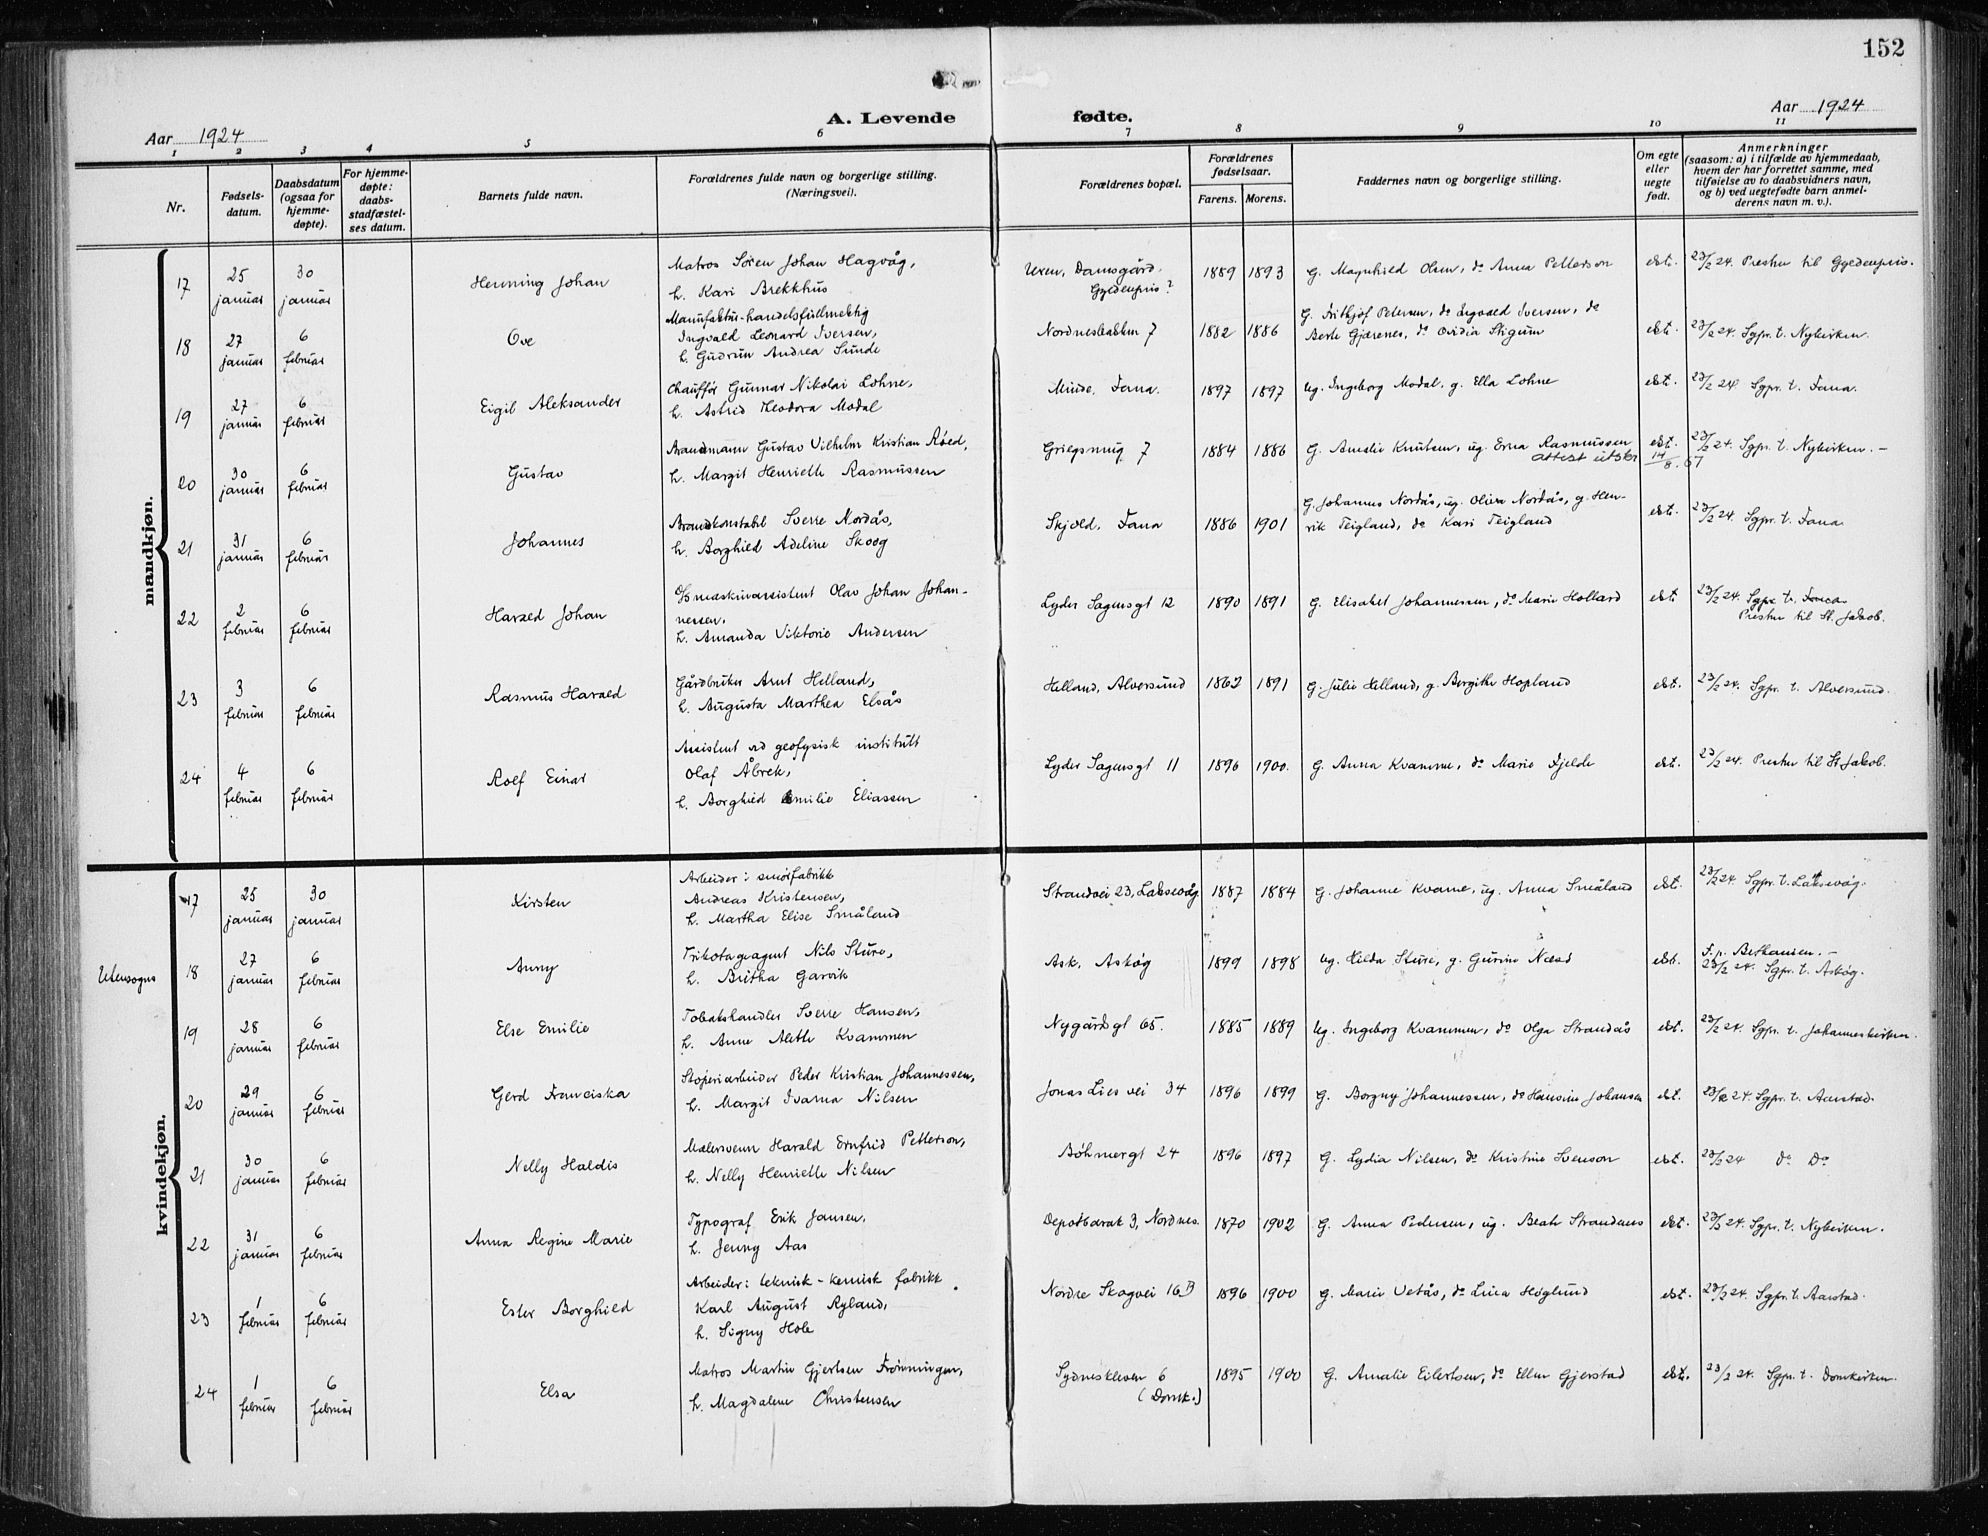 152
A. Levende fødte.
Aar 1924
Aar 1924
1 2 3 4 5 6 7 8 9 10 11
Nr.
Fødsels-
datum.
Daabsdatum
(ogsaa for
hjemme-
døpte).
For hjemme-
døpte:
daabs-
stadfæstel-
ses datum.
Barnets fulde navn.
Forældrenes fulde navn og borgerlige stilling.
(Næringsvei).
Forældrenes bopæl.
Forældrenes
fødselsaar.
Farens. Morens.
Faddernes navn og borgerlige stilling.
Om egte
eller
uegte
født.
Anmerkninger
(saasom: a) i tilfælde av hjemmedaab,
hvem der har forrettet samme, med
tilføielse av to daabsvidners navn,
og b) ved uegtefødte barn anmel-
derens navn m. v.).
mandkjøn.
17
25 januar
30 januar
Henning Johan
Matros Søren Johan Hagvåg,
h. Kari Brekkhus
Uren, Damsgård.
Gyldenpris?
1889 1893
G. Magnhild Olsen, do Anna Petterson
ekt.
23/2 24. Presten til Gyldenpris.
18
27 januar
6 februar
Ove
Manufaktur-handelsfullmektig
Ingvald Leonard Iversen,
h. Gudrun Andrea Sunde
Nordnesbakken 7
1882 1886
G. Fritkjof Petersen, do Ingvald Iversen, do
Berte Gjærenes, do Ovidia Stigum
ekt.
23/2 24. Sgpr. t. Nykirken.
19
27 januar
6 februar
Eigil Aleksander
Chauffør Gunnar Nikolai Lohne,
h. Astrid Theodora Modal
Minde, Fana.
1897 1897
Ug. Ingeborg Modal, g. Ella Lohne
ekt.
23/2 24 Sgpr. t. Fana.
20
30 januar
6 februar
Gustav
Brandmann Gustav Vilhelm Kristian Røed,
h. Margit Henriette Rasmussen
Griegsmug 7
1884 1886
G. Amalie Knutsen, ug. Erna Rasmussen
attest utskr 14/8.67
ekt.
23/2 24. Sgpr. t. Nykirken. -
21
31 januar
6 februar
Johannes
Brandkonstabel Sverre Nordås,
h. Borghild Adeline Skoog
Skjold, Fana
1886 1901
G. Johannes Nordås, ug. Oliva Nordås, g. Hen-
rik Teigland, do Kari Teigland
ekt.
23/2 24. Sgpr. t. Fana
22
2 februar
6 februar
Harald Johan
O/smaskinassistent Olav Johan Johan-
nessen,
h. Amanda Viktoria Andersen
Lyder Sagensgt 12
1890 1891
G. Elisabet Johannessen, do Marie Holland
ekt.
23/2 24. Sgpr t. Fana
Presten til St. Jakob.
23
3 februar
6 februar
Rasmus Harald
Gårdbruker Arnt Helland,
h. Augusta Marthea Elsås
Helland, Alversund
1862 1891
G. Julie Helland, g. Bergithe Hopland
ekt.
23/2 24. Sgpr. t. Alversund.
24
4 februar
6 februar
Rolf Einar
Assistent ved geofysisk institutt
Olaf Åbrek,
h. Borghild Emilie Eliassen
Lyder Sagensgt 11
1896 1900.
G. Anna Kvamme, do Marie Fjelde
ekt.
23/2 24. Presten til St Jakob.
kvindekjøn.
17
25 januar
30 januar
Kirsten
Arbeider i smørfabrikk
Andreas Kristensen,
h. Martha Elise Småland
Strandvei 23, Laksevåg.
1887 1884
G. Johanne Kvarne, ug. Anna Småland
ekt.
23/2 24. Sgpr. t. Laksevåg.
Utensogns
18
27 januar
6 februar
Anny
Trikotageagent Nils Sture,
h. Britha Garvik
Ask, Askøy
1899 1898
Ug. Hilda Sture, g. Gurine Næsd
ekt.
F. p. Bethanien. -
23/2 24. Sgpr. t. Askøy.
19
28 januar
6 februar
Else Emilie
Tobakshandler Sverre Hansen,
h. Anne Alette Kvammen
Nygårdsgt 65.
1885 1889
Ug. Ingeborg Kvammen, do Olga Strandås
ekt.
23/2 24. Sgpr. t. Johanneskirken.
20
29 januar
6 februar
Gerd Franciska
Støperiarbeider Peder Kristian Johannessen,
h. Margit Ivarna Nilsen
Jonas Lies vei 34
1896 1899
G. Borgny Johannessen, do Hansine Johansen
ekt.
23/2 24. Sgpr. t. Aarstad.
21
30 januar
6 februar
Nelly Haldis
Malersvenn Harald Ernfrid Petterson,
h. Nelly Henriette Nilsen
Bøhmergt 24
1896 1897
G. Lydia Nilsen, do Kristine Svenson
ekt.
23/2 24 do Do
22
31 januar
6 februar
Anna Regine Marie
Typograf Erik Jansen,
h. Jenny Aas
Depotbarak 3, Nordnes.
1870 1902
G. Anna Pedersen, ug. Beate Strandenes
ekt.
23/2 24. Sgpr. t. Nykirken.
23
1 februar
6 februar
Ester Borghild
Arbeider i teknisk-kemisk fabrikk
Karl August Ryland,
h. Signy Hole
Nordre Skogvei 16 B
1896 1900
G. Marie Vetås, do Lina Høglund
ekt.
23/2 24. Sgpr. t. Aarstad.
24
1 februar
6 februar
Elsa
Matros Martin Gjertsen Frønningen,
h. Magdalene Christensen
Sydnesklesen 6
(Domk.)
1895 1900
G. Amalie Eilertsen, do Ellen Gjerstad
ekt.
23/2 24. Sgpr. t. Domkirken.